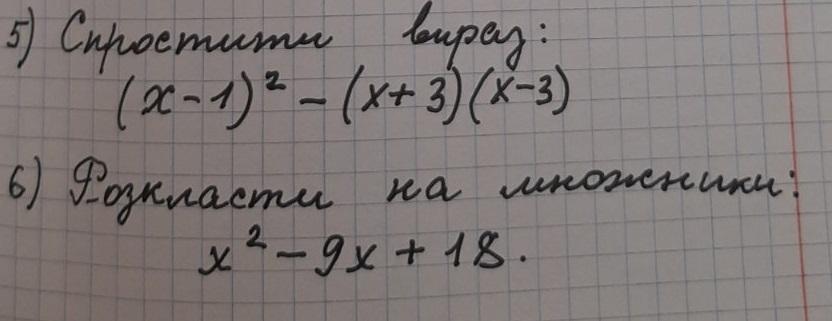 5) Спростити вираз:
(x - 1)² - (x + 3)(x - 3)
6) Розкласти на множники:
x² - 9x + 18.